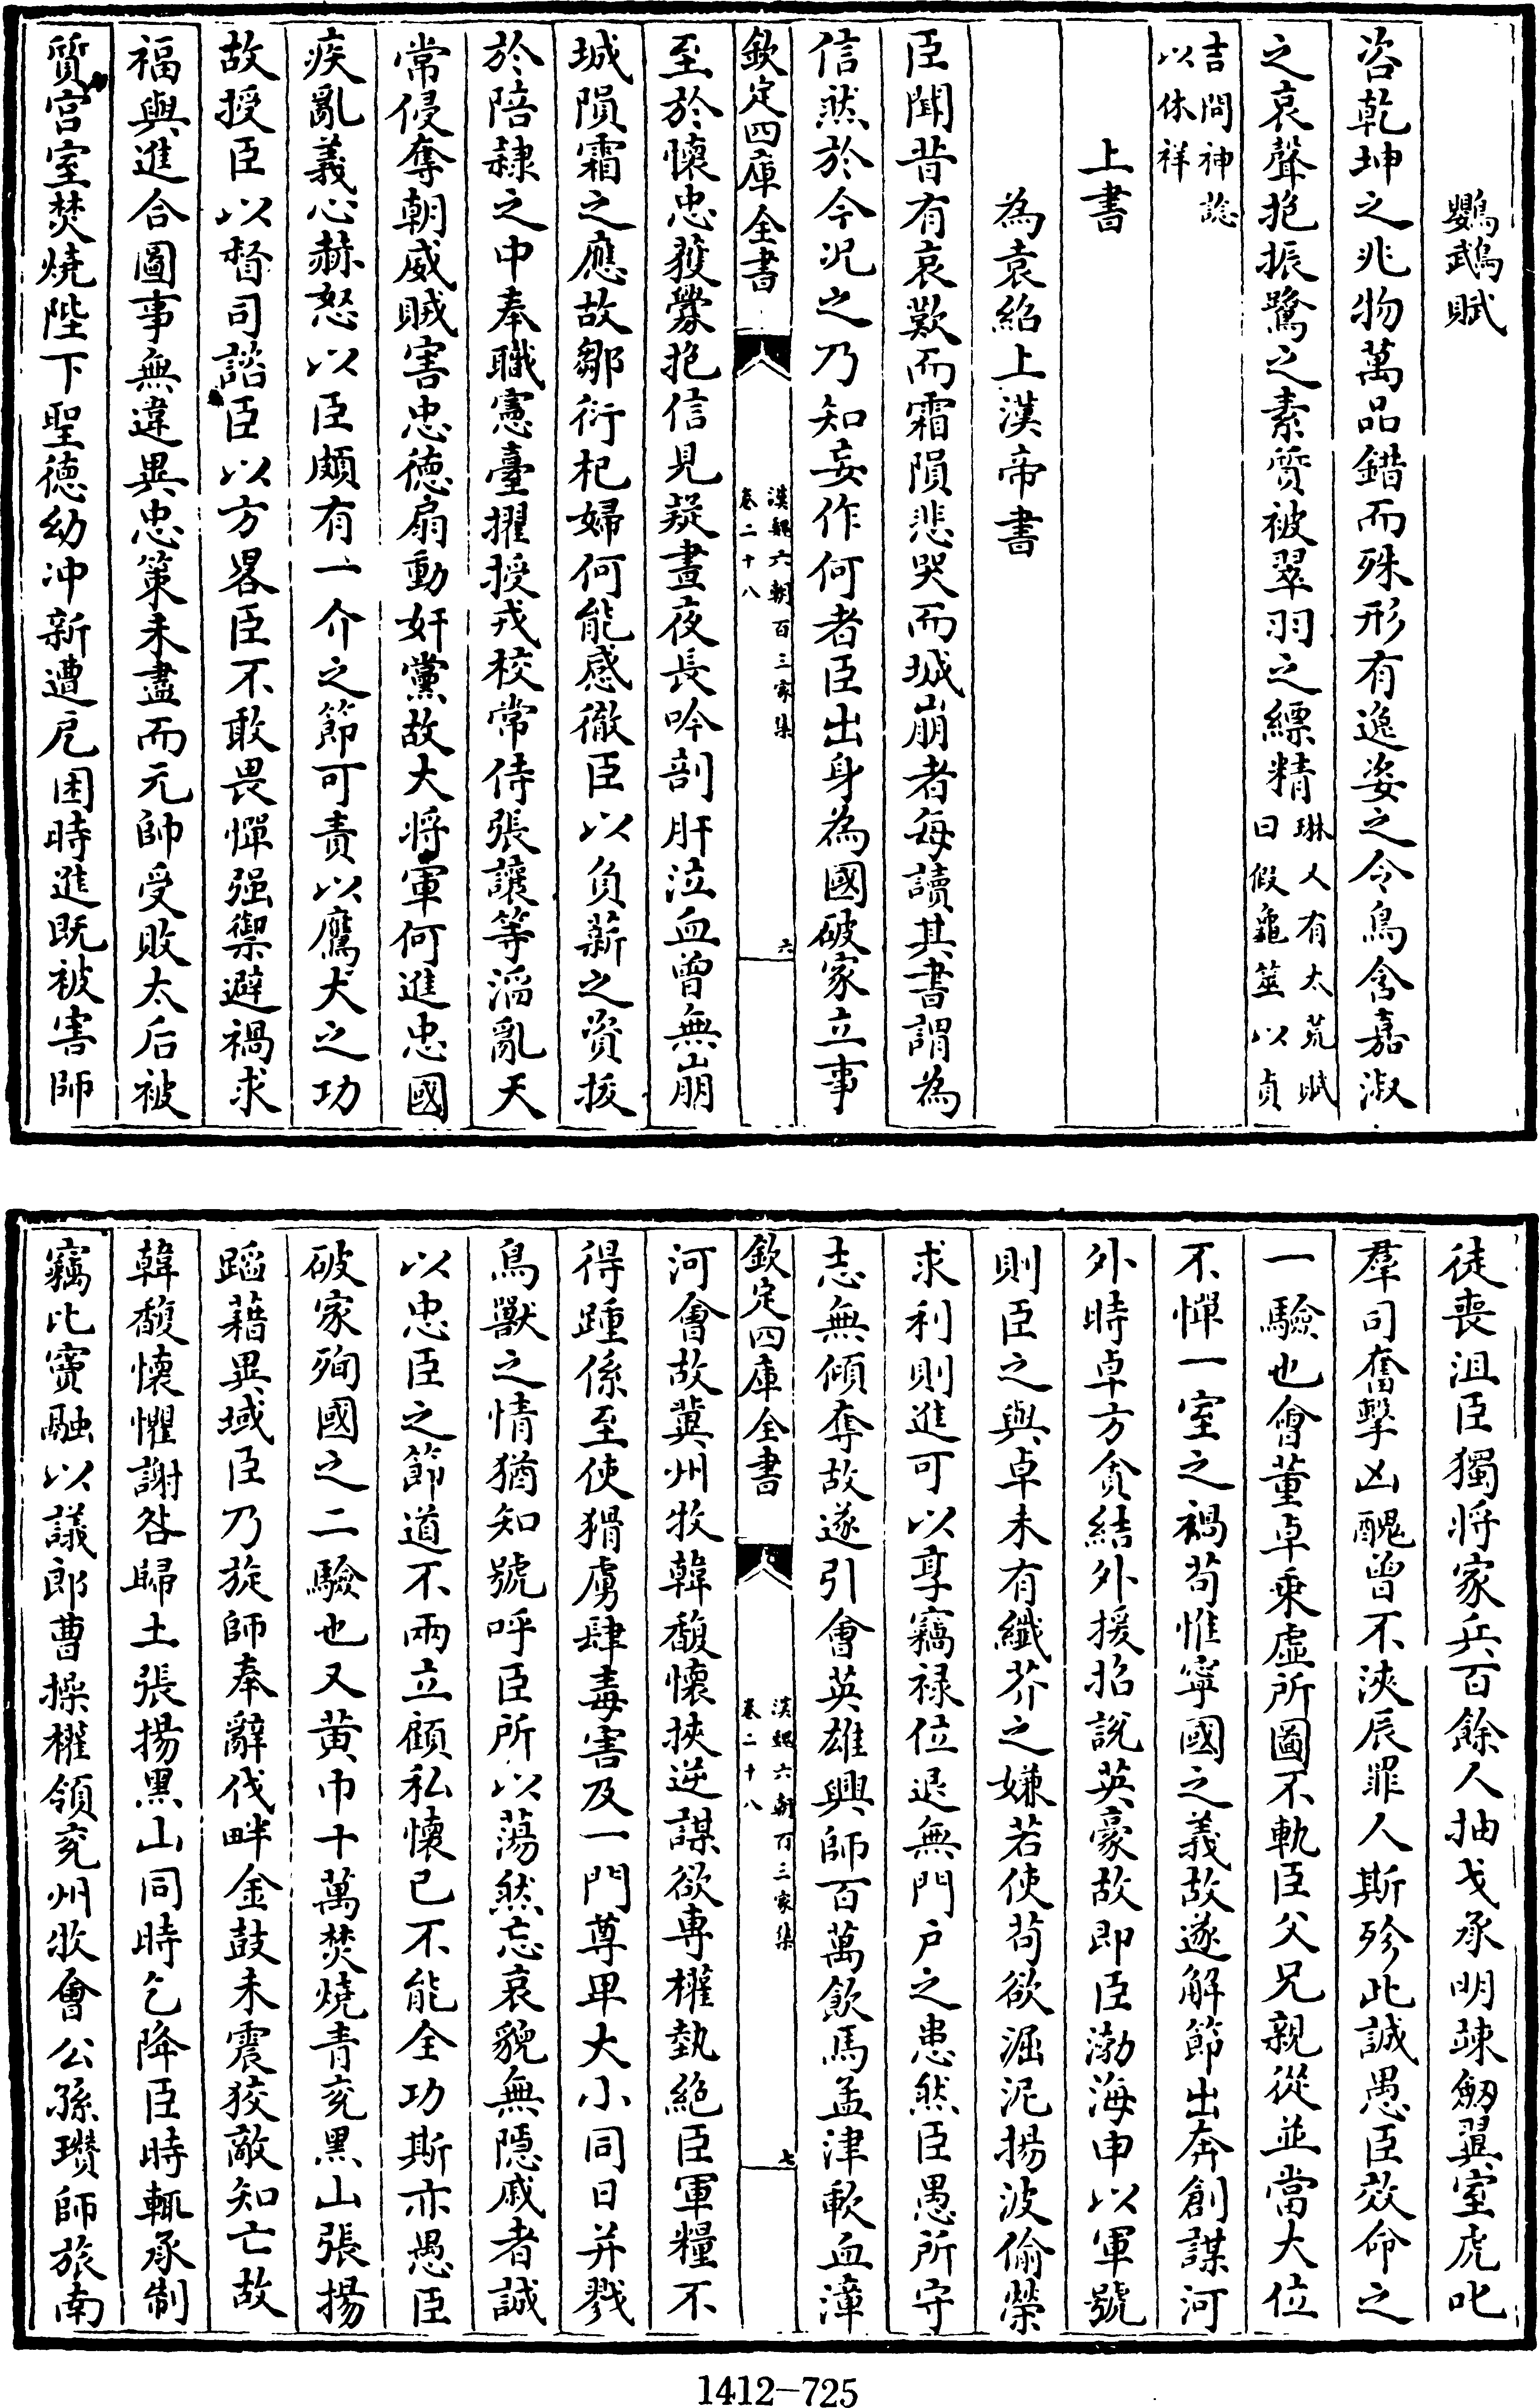 鸚鵡賦
咨乾坤之兆物萬品錯而殊形有逸姿之令鳥含嘉淑
之哀聲抱振鷺之素質被翠羽之縹精琳又有大荒賦曰假龜筮以貞
吉問神諗以休祥
上書
為袁紹上漢帝書
臣聞昔有哀歎而霜隕悲哭而城崩者每讀其書謂為
信然於今况之乃知妄作何者臣出身為國破家立事
欽定四庫全書 漢魏六朝百三家集卷二十八 六
至於懷忠獲釁抱信見疑晝夜長吟剖肝泣血曾無崩
城隕霜之應故鄒衍杞婦何能感徹臣以負薪之資拔
於陪隷之中奉職憲臺擢授戎校常侍張讓等滔亂天
常侵奪朝威賊害忠徳扇動奸黨故大將軍何進忠國
疾亂義心赫怒以臣頗有一介之節可責以鷹犬之功
故授臣以督司諮臣以方畧臣不敢畏憚强禦避禍求
福與進合圖事無違異忠策未盡而元帥受敗太后被
質宫室焚燒陛下聖德幼冲新遭厄困時進既被害師
徒喪沮臣獨將家兵百餘人抽戈承明竦劒翼室虎叱
羣司奮擊凶醜曾不浹辰罪人斯殄此誠愚臣效命之
一驗也會董卓乘虚所圖不軌臣父兄親從並當大位
不憚一室之禍苟惟寧國之義故遂解節出奔創謀河
外時卓方貪結外援招說英豪故即臣渤海申以軍號
則臣之與卓未有纎芥之嫌若使苟欲滛泥揚波偷榮
求利則進可以享竊禄位退無門户之患然臣愚所守
志無傾奪故遂引會英雄興師百萬飲馬孟津歃血漳
欽定四庫全書 漢魏六朝百三家集卷二十八 七
河會故冀州牧韓馥懷挾逆謀欲専權埶絶臣軍糧不
得踵係至使猾虜肆毒害及一門尊卑大小同日并戮
鳥獸之情猶知號呼臣所以蕩然忘哀貌無隠戚者誠
以忠臣之節道不兩立顧私懷已不能全功斯亦愚臣
破家殉國之二驗也又黄巾十萬焚燒青兖黑山張揚
蹈藉異域臣乃旋師奉辭伐畔金鼓未震狡敵知亡故
韓馥懷懼謝咎歸土張揚黑山同時乞降臣時輒承制
竊比竇融以議郎曹操權領兖州牧會公孫瓚師旅南
1412—725